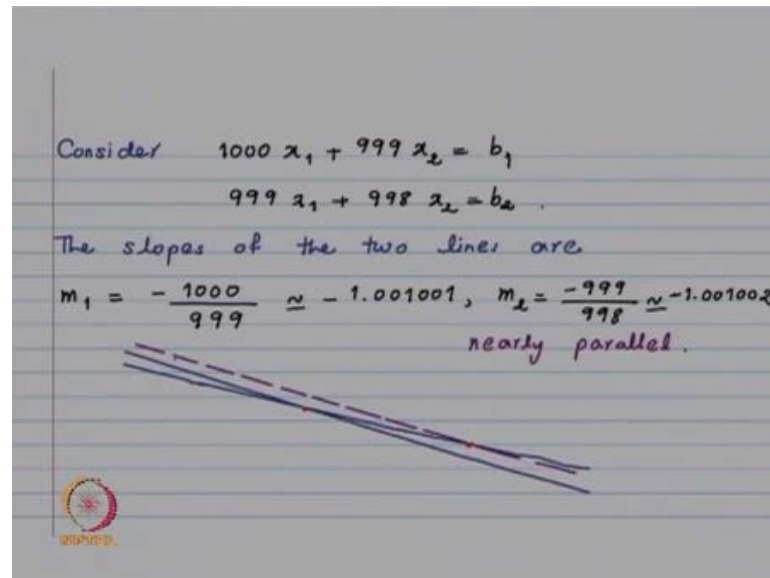 Consider 1000 x₁ + 999 x₂ = b₁
999 x₁ + 998 x₂ = b₂ .
The slopes of the two lines are
m₁ = - 1000/999 ≃ - 1.001001, m₂ = -999/998 ≃ -1.001002
nearly parallel.
NPTEL